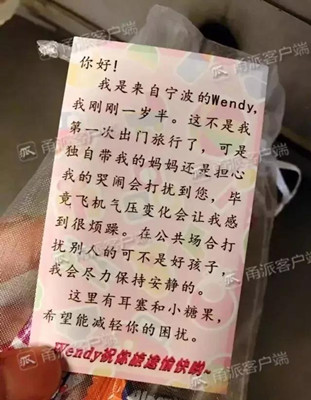 你好!
我是来自宁波的Wendy,
我刚刚一岁半。这不是我
第一次出门旅行了，可是
独自带我的妈妈还是担心
我的哭闹会打扰到您，毕
竟飞机气压变化会让我感
到很烦躁。在公共场合打
扰别人的可不是好孩子，
我会尽力保持安静的。
这里有耳塞和小糖果，
希望能减轻你的困扰。
Wendy祝你旅途愉快哟~
甬派客户端
甬派客户端
甬派客户端
甬派客户端
甬派客户端
甬派客户端